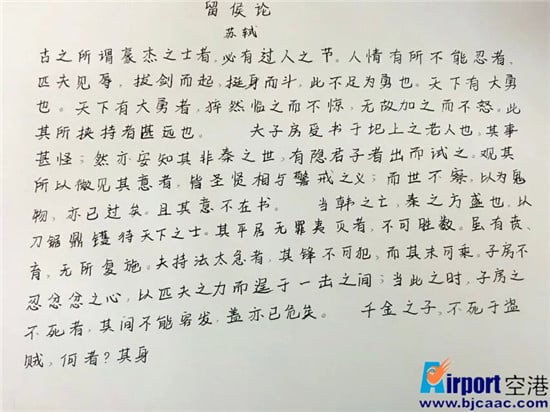 留侯论
苏轼
古之所谓豪杰之士者,必有过人之节。人情有所不能忍者、
匹夫见辱,拔剑而起,挺身而斗,此不足为勇也。天下有大勇
也。天下有大勇者,猝然临之而不惊,无故加之而不怒。此
其所挟持者甚远也。 夫子房受书于圯上之老人也,其事
甚怪;然亦安知其非秦之世,有隐君子者出而试之。观其
所以微见其意者,皆圣贤相与警戒之义;而世不察,以为鬼
物,亦已过矣。且其意不在书。 当韩之亡,秦之方盛也,以
刀锯鼎镬待天下之士。其平居无罪夷灭者,不可胜数。虽有贲、
育,无所复施。夫持法太急者,其锋不可犯,而其末可乘。子房不
忍忿忿之心,以匹夫之力而逞于一击之间;当此之时,子房之
不死者,其间不能容发,盖亦已危矣。 千金之子,不死于盗
贼,何者?其身
Airport空港
www.bjcaac.com